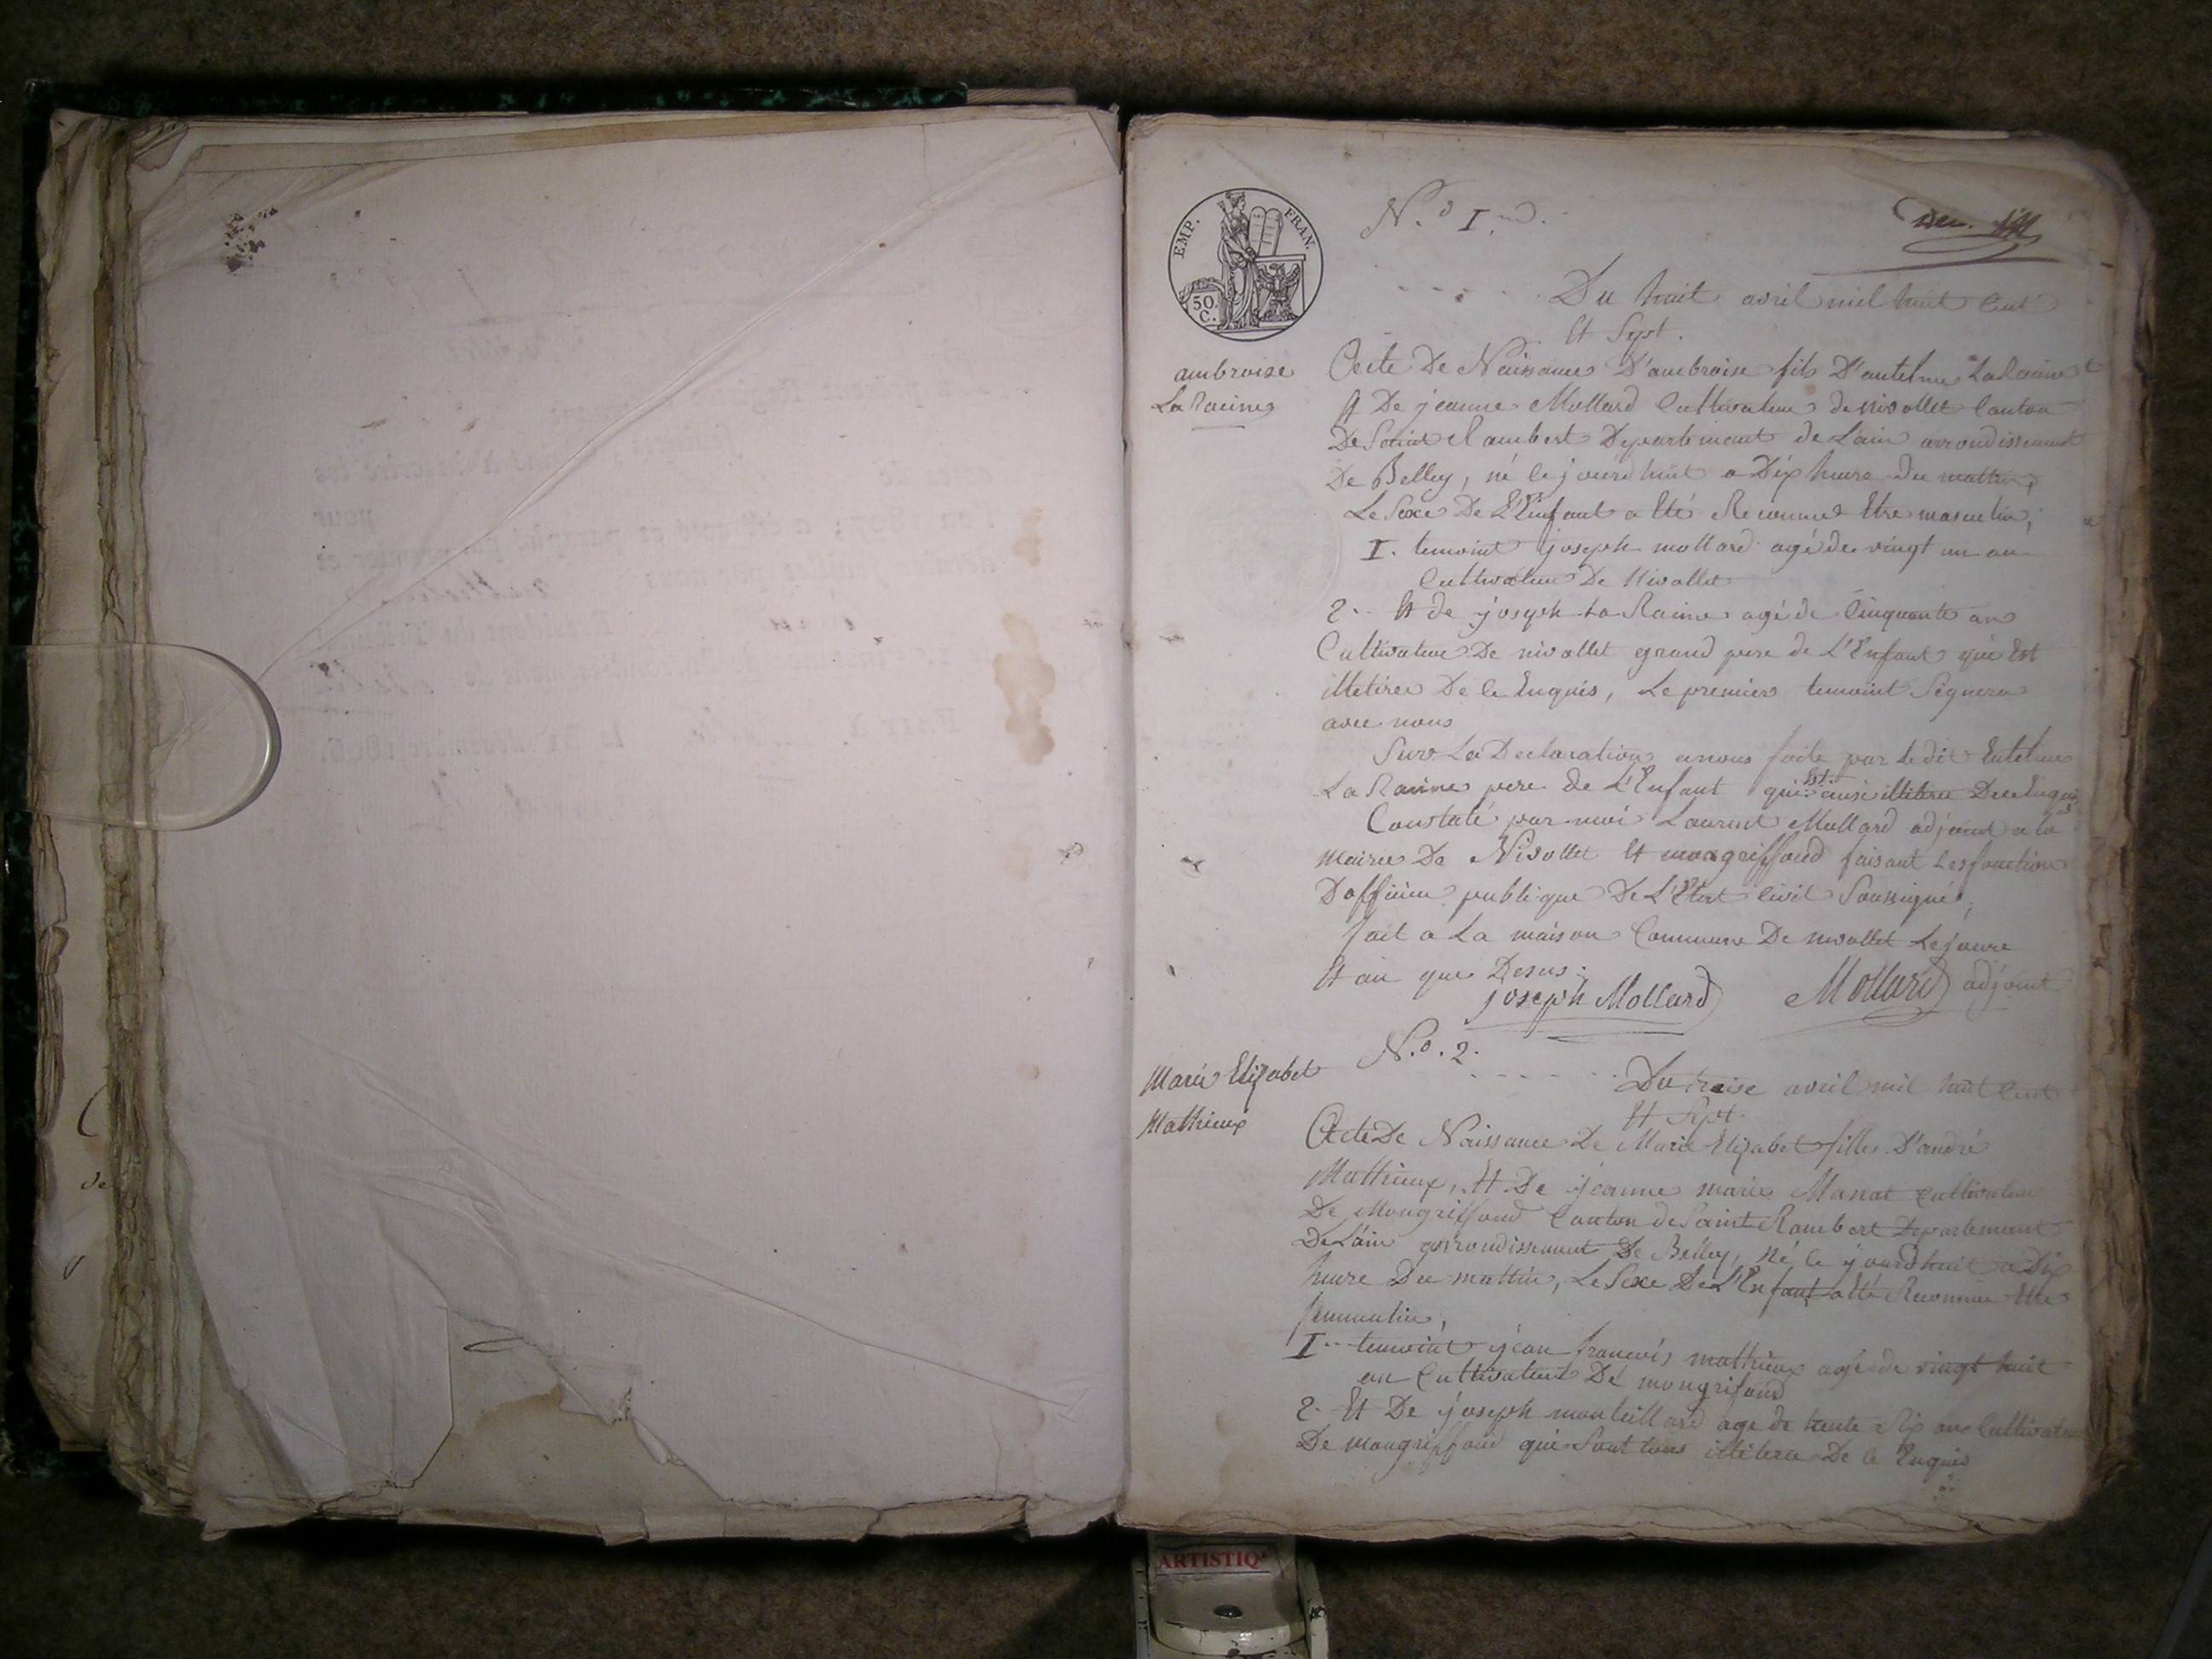 EMP. FRAN.
50.
C.
N.o I.
Du huit avril mil huit Cent
Et Sept.
ambroise
La Racine
Acte De Naissance D'ambroise fils D'antelme La Racine
Et De jeanne Mollard Cultivateur de nivollet Canton
De Saint Rambert Departement de Lain arrondissement
De Belley, né le jourdhuit a Dix heure du mattin,
Le Sexe De L'Enfant a Eté Reconnue Etre masculin,
I. temoint joseph mollard agé de vingt un an
Cultivateur De Nivollet
2. Et de joseph La Racine agé de Cinquante ans
Cultivateur De nivollet grand pere de L'Enfant qui Est
illetiree De le Enquis, Le premier temoint Signera
avec nous
Sur La Declaration anous faite par le dit Entelme
La Racine pere de L'Enfant qui Est ausi illiteree De ce Enquis
Constaté par moi Laurent Mollard adjoint a la
Mairie De Nivollet Et mongriffond faisant Les fonction
D'officier publique De L'Etat Civil Soussigné,
fait a La maison Commune De nivollet Le joure
Et an que Desus.
joseph Mollard Mollard adjoint
N.o. 2.
Marie Elizabet
Mathieux
Du traise avril mil huit Cent
Et Sept.
Acte De Naissance De Marie Elizabet fille D'andré
Mathieux, Et De jeanne marie Manat Cultivateur
De Mongriffond Canton de Saint Rambert Departement
De Lain arrondissement De Belley, né le jourdhuit a Dix
heure Du mattin, Le Sexe De L'Enfant a Eté Reconnue Etre
femmulin,
I. temoint jean francois mathieux agé de vingt huit
an Cultivateur De mongrifond
2. Et De joseph monteillard age de trante Six ans Cultivateur
De mongriffond qui Sont tous illitera De le Enquis
ARTISTIQ